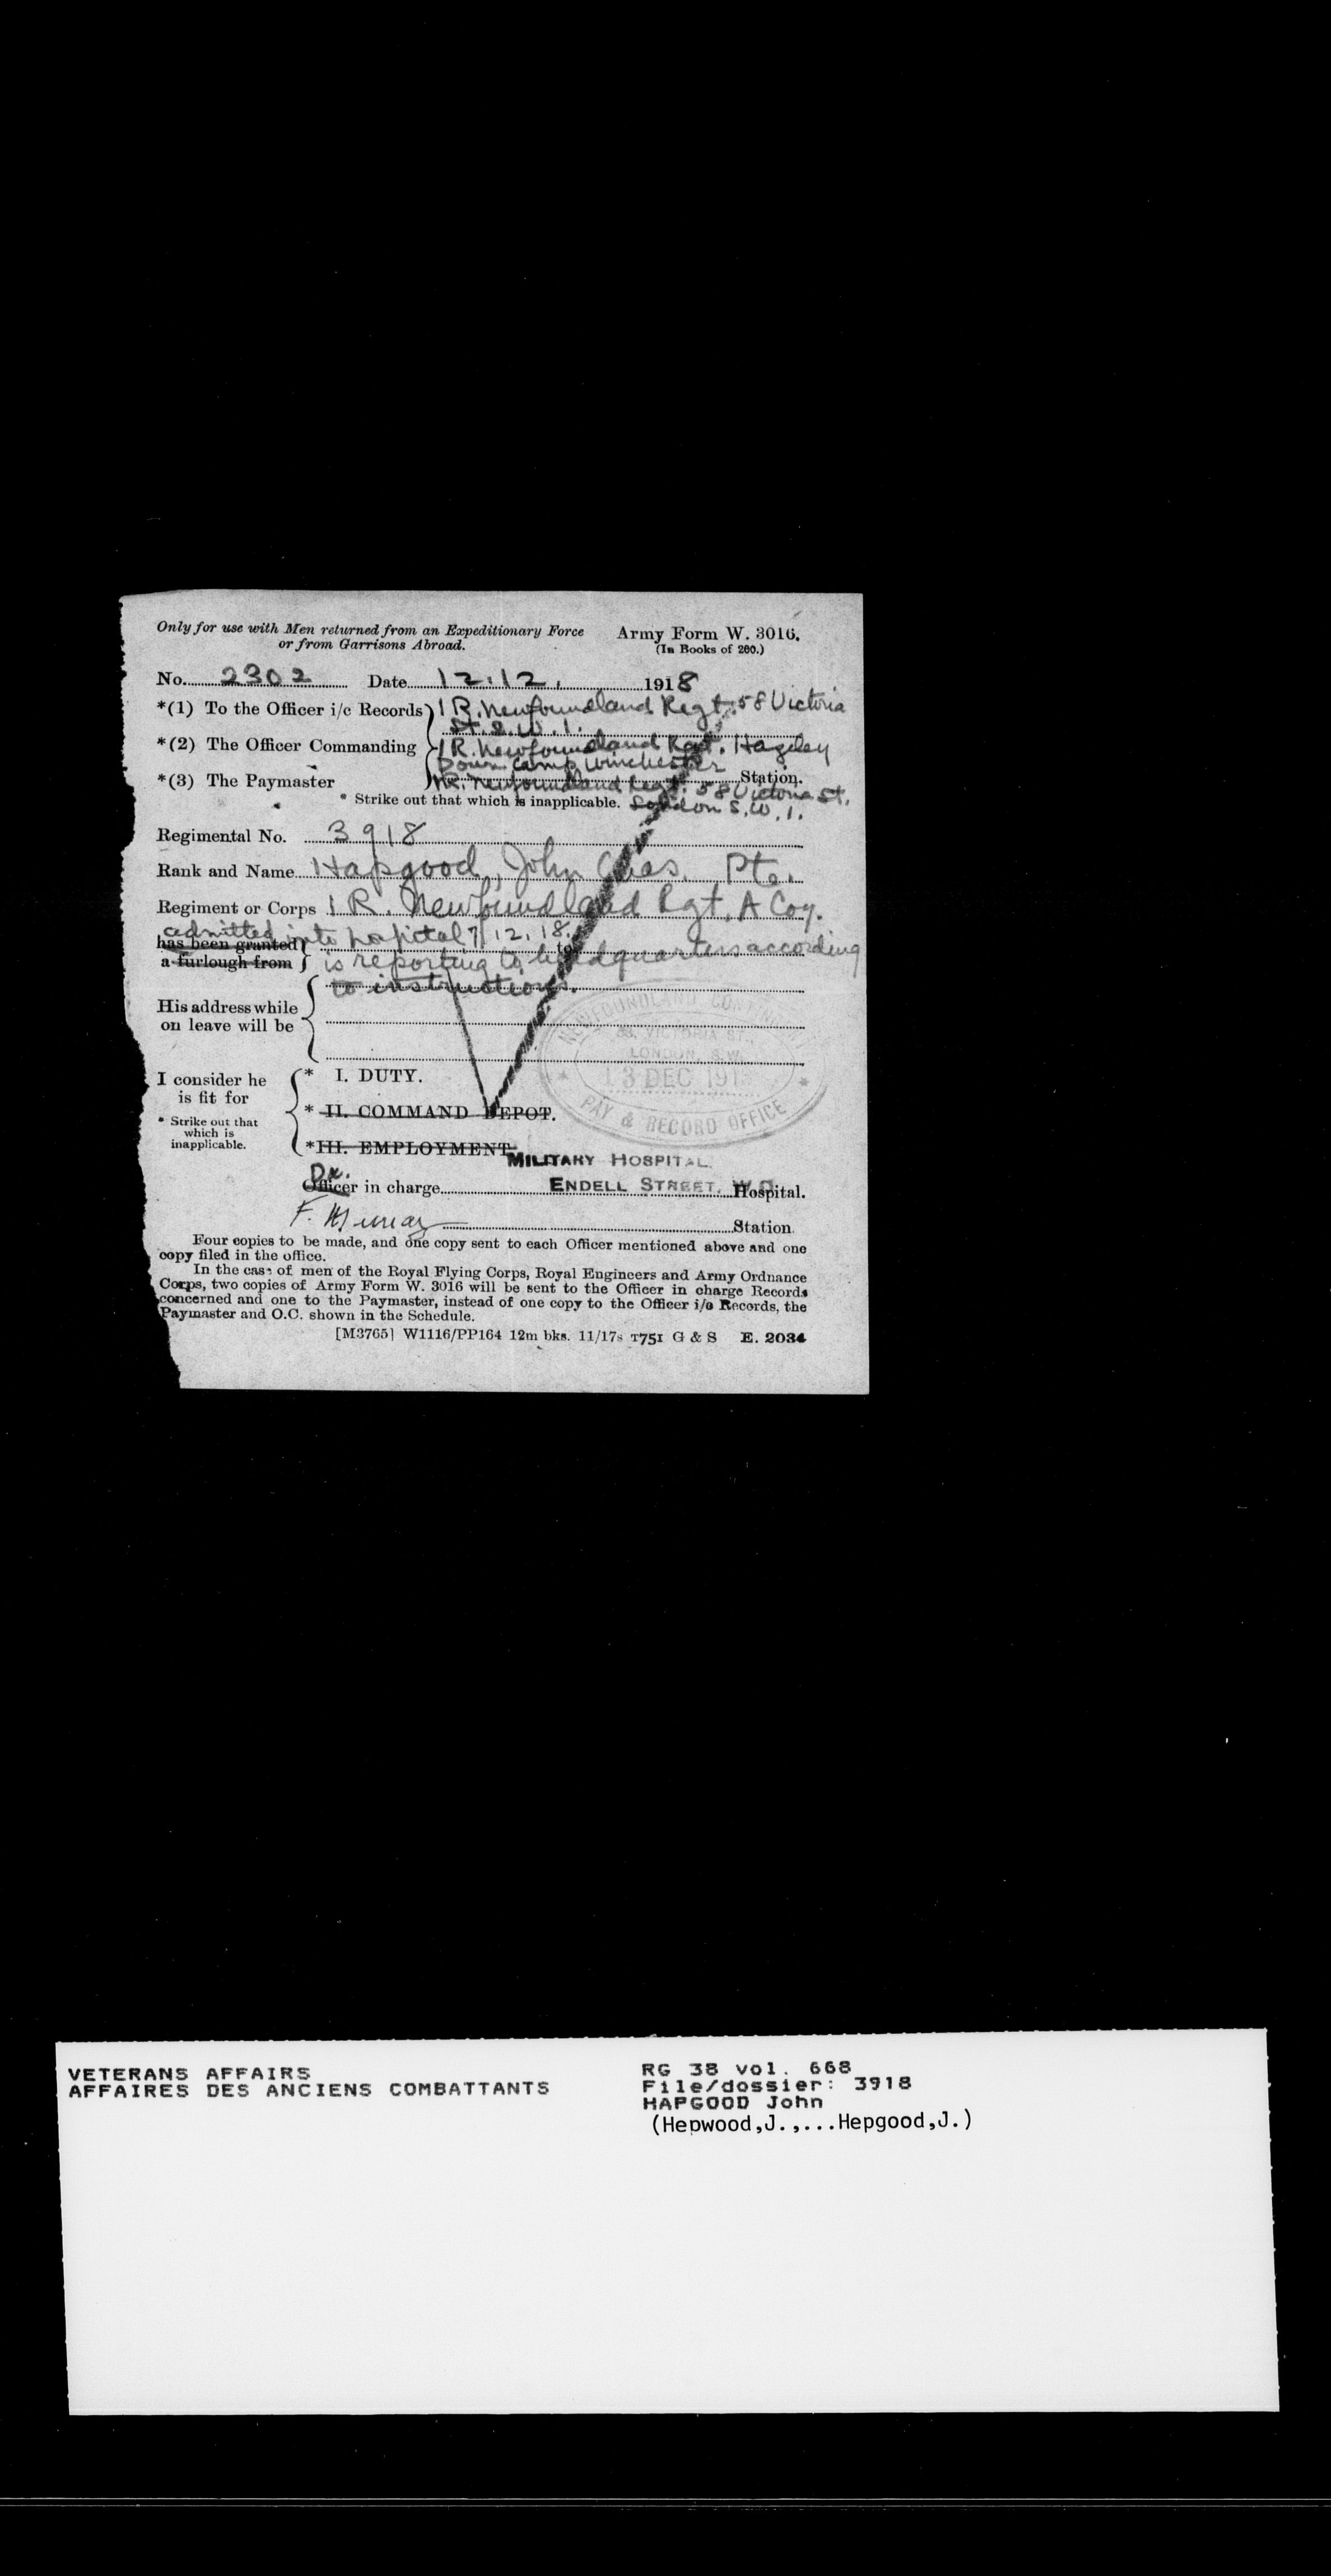 Only for use with Men returned from an Expeditionary Force
or from Garrisons Abroad.
Army Form W. 3016.
(In Books of 200.)
No. 2302 Date 12.12. 1918
*(1) To the Officer i/c Records 1 R. Newfoundland Regt. 58 Victoria
St. S.W.1.
*(2) The Officer Commanding 1 R. Newfoundland Regt. Hazeley
Down Camp Winchester
*(3) The Paymaster R. Newfoundland Regt. 58 Victoria St. Station.
* Strike out that which is inapplicable. London S.W.1.
Regimental No. 3918
Rank and Name Hapgood, John Chas. Pte.
Regiment or Corps 1 R. Newfoundland Rgt. A Coy.
admitted into hospital 7/12.18.
has been granted to
a furlough from is reporting to headquarters according
to instructions.
His address while
on leave will be
I consider he
is fit for
* Strike out that
which is
inapplicable.
* I. DUTY.
* II. COMMAND DEPOT.
* III. EMPLOYMENT.
NEWFOUNDLAND CONTINGENT
58, VICTORIA ST.,
LONDON, S.W.
13 DEC 191
PAY & RECORD OFFICE
MILITARY HOSPITAL.
Dr.
Officer in charge ENDELL STREET, W.C. Hospital.
F. Murray Station.
Four copies to be made, and one copy sent to each Officer mentioned above and one
copy filed in the office.
In the case of men of the Royal Flying Corps, Royal Engineers and Army Ordnance
Corps, two copies of Army Form W. 3016 will be sent to the Officer in charge Records
concerned and one to the Paymaster, instead of one copy to the Officer i/c Records, the
Paymaster and O.C. shown in the Schedule.
[M3765] W1116/PP164 12m bks. 11/17s T751 G & S E. 2034
VETERANS AFFAIRS
AFFAIRES DES ANCIENS COMBATTANTS
RG 38 vol. 668
File/dossier: 3918
HAPGOOD John
(Hepwood,J.,...Hepgood,J.)